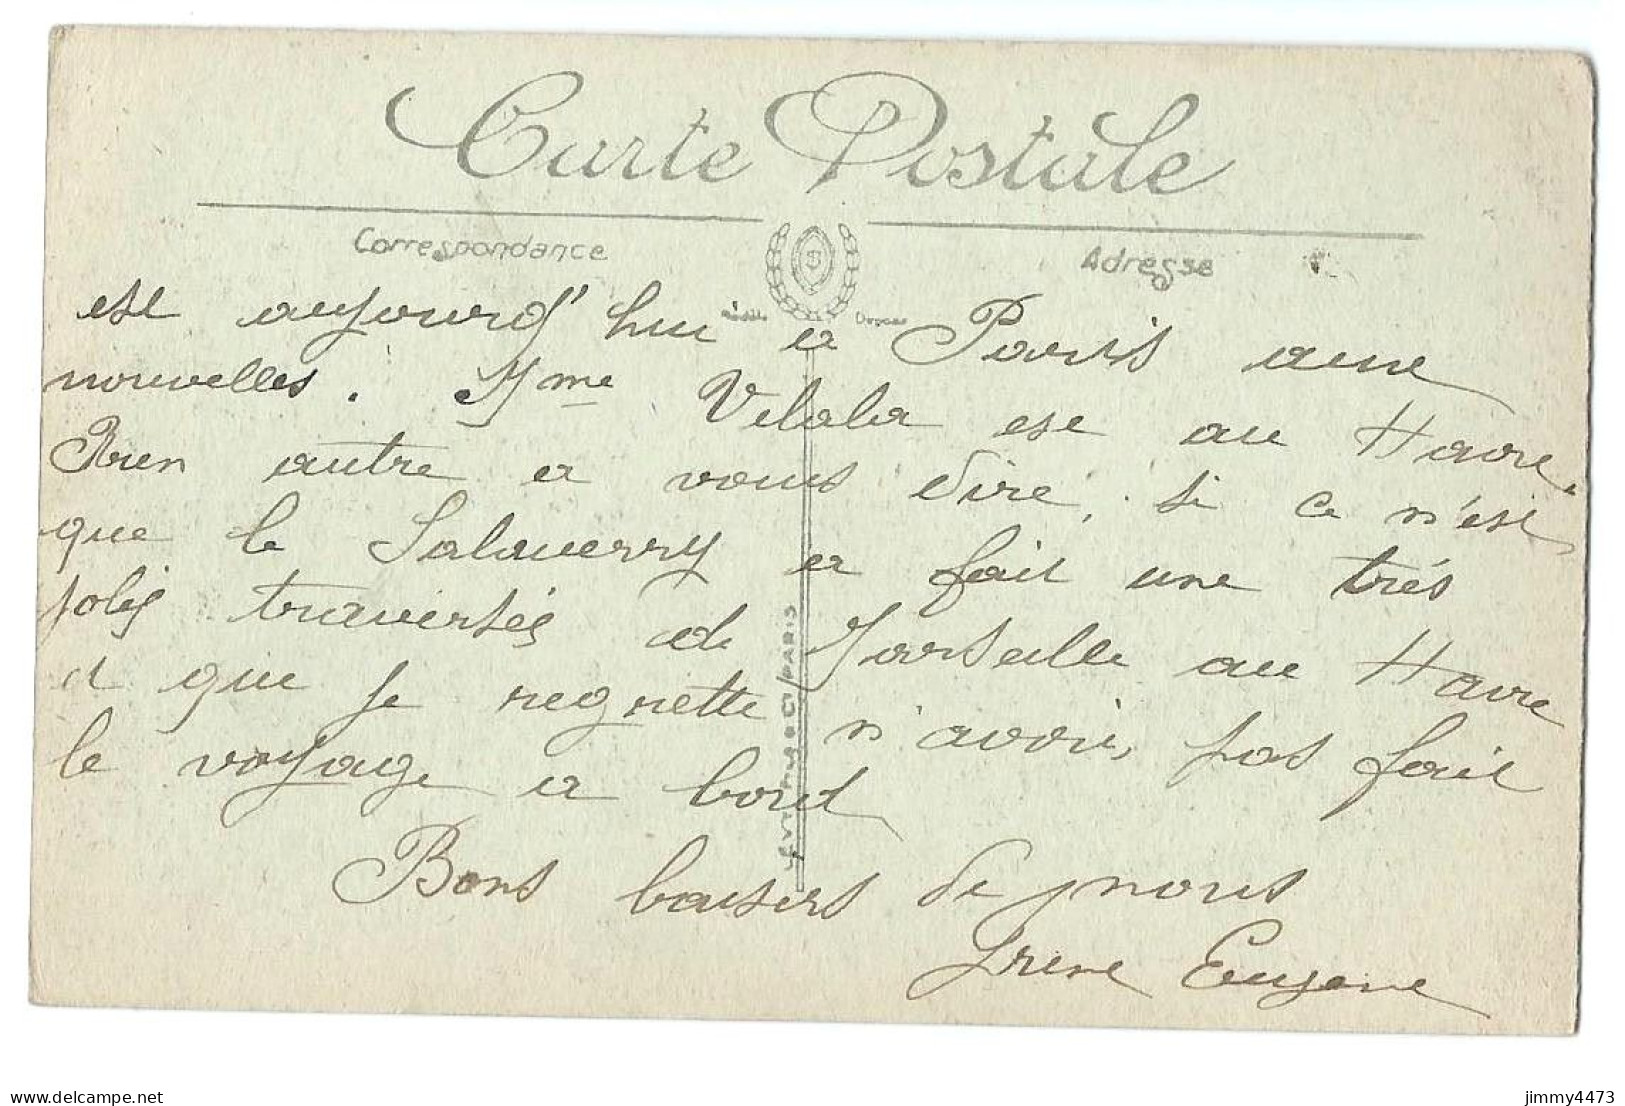 Carte Postale
Correspondance
Adresse
Modèle Déposé
est aujourd'hui a Paris aune
nouvelles. Mme Velala est au Havre.
Rien autre a vous dire, si ce n'est
que le Salaverry a fait une très
jolij traverséij de Marseille au Havre
et que je regrette n'avoir pas fait
le voyage a bord
Bons baisers de nous
Irene Eugene
PARIS
delcampe.net
jimmy4473